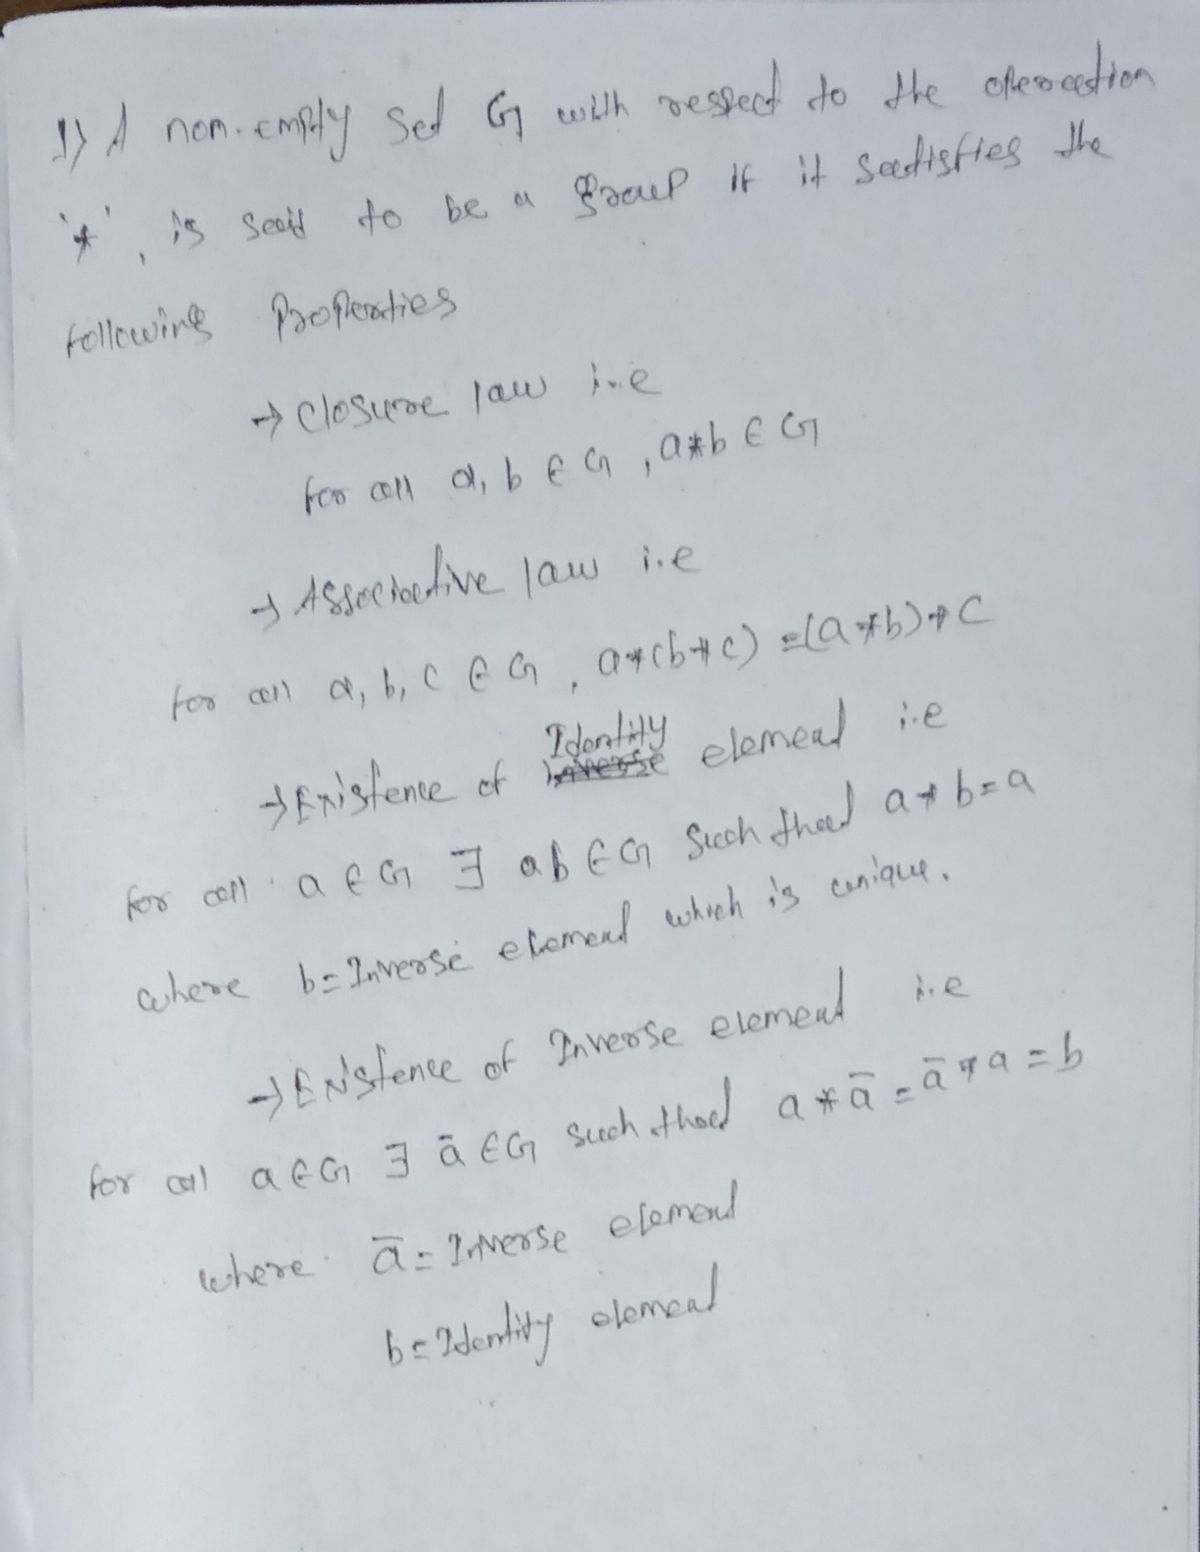 1) A non-empty set G with respect to the operation
'*', is said to be a group if it satisfies the
following properties
→ Closure law i.e
for all a, b ∈ G, a*b ∈ G
→ Associative law i.e
for all a, b, c ∈ G, a*(b*c) = (a*b)*c
Identity
→ Existence of inverse element i.e
for all a ∈ G ∃ a b ∈ G such that a * b = a
where b = Inverse element which is unique.
→ Existence of Inverse element i.e
for all a ∈ G ∃ ā ∈ G such that a * ā = ā * a = b
where ā = Inverse element
b = Identity element